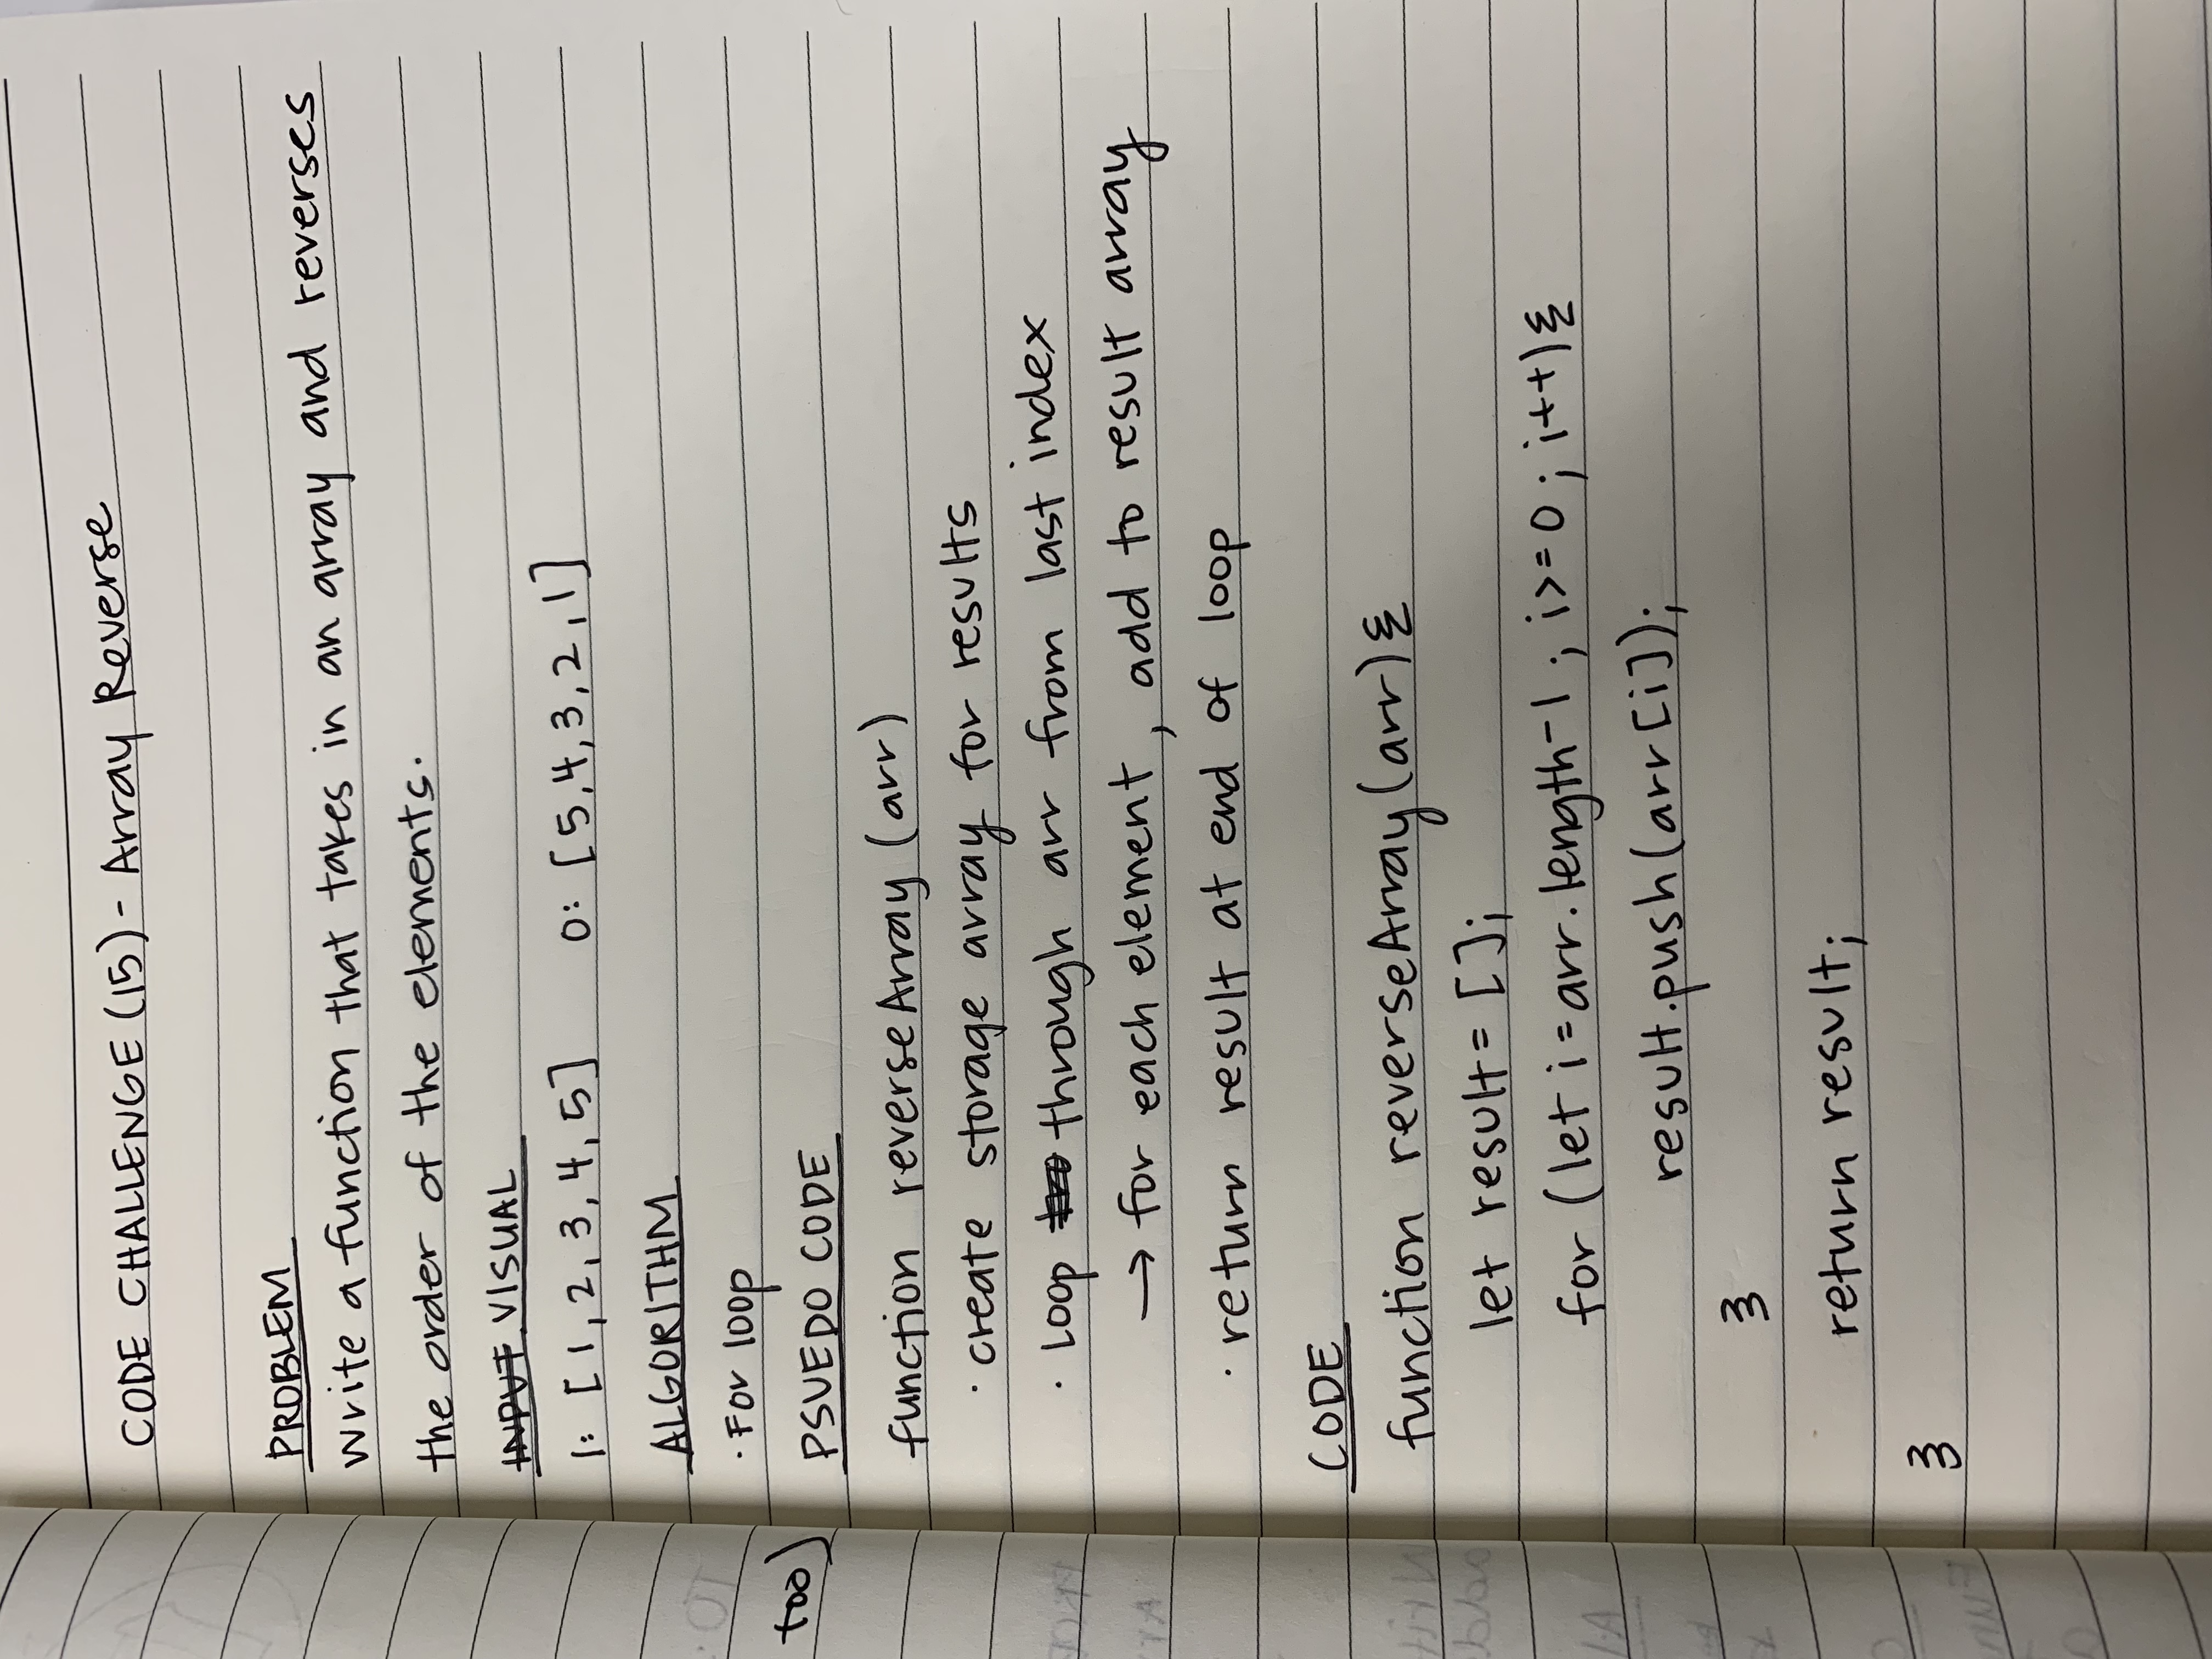 CODE CHALLENGE (15) - Array Reverse
PROBLEM
Write a function that takes in an array and reverses
the order of the elements.
INPUT VISUAL
I: [1,2,3,4,5] O: [5,4,3,2,1]
ALGORITHM
· For loop
too)
PSUEDO CODE
function reverseArray (arr)
· create storage array for results
· Loop through arr from last index
→ for each element, add to result array
· return result at end of loop
CODE
function reverseArray(arr){
let result = [];
for (let i = arr.length-1; i>=0; i++){
result.push(arr[i]);
}
return result;
}